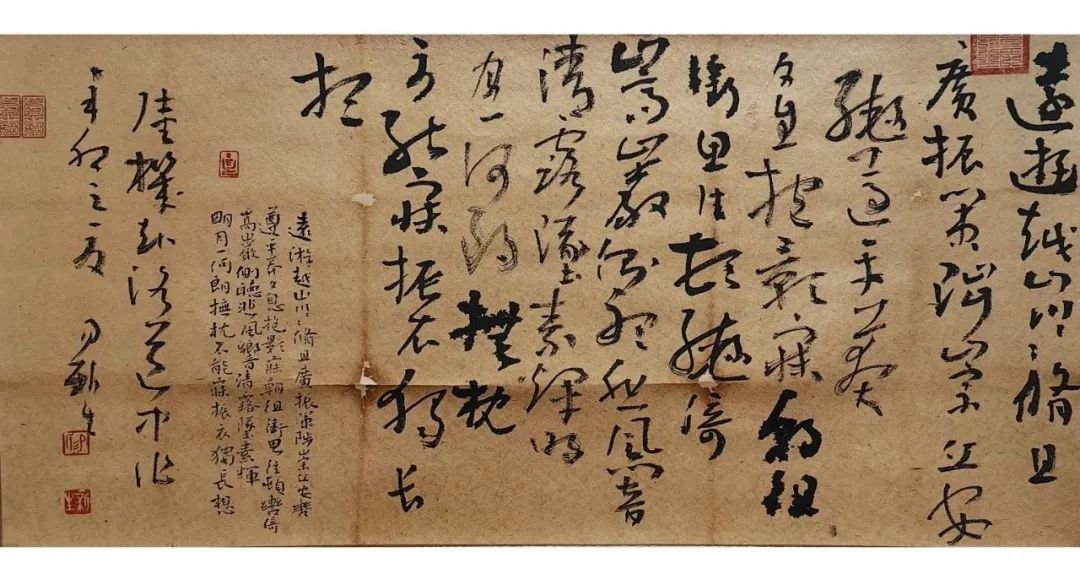 遠遊越山川〻脩且
廣振策陟崇丘安
轡遵平莽
夕息抱影寐朝徂
銜思往頓轡倚
嵩巖側聽悲風響
清露墜素輝明
月一何朗撫枕
不能寐振衣獨長
想
遠游越山川〻脩且廣振策陟崇丘安轡
遵平莽夕息抱影寐朝徂銜思往頓轡倚
嵩巖側聽悲風響清露墜素輝
明月一何朗撫枕不能寐振衣獨長想
陸機赴洛道中作
辛卯之夏 新生
新生